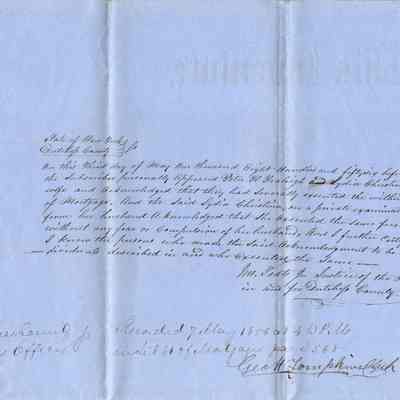 State of New York
Dutchess County ss
On this third day of May One thousand Eight Hundred and fifty six before
the Subscriber personally appeared Peter
wife and Acknowledged that they had Severally executed the within
of Mortgage. And the Said Lydia Christina on a private examination
from her husband Acknowledged that She executed the Same freely
without any fear or Compulsion of her husband, And I further Certify
I Know the persons who made the Said Acknowledgment to be the
dividuals described in and who executed the Same
Justice of the
in and for Dutchess County
Recorded 7 May 1856 at 4 P.M.
of Mortgages page 568
Geo W Tompkins Clerk